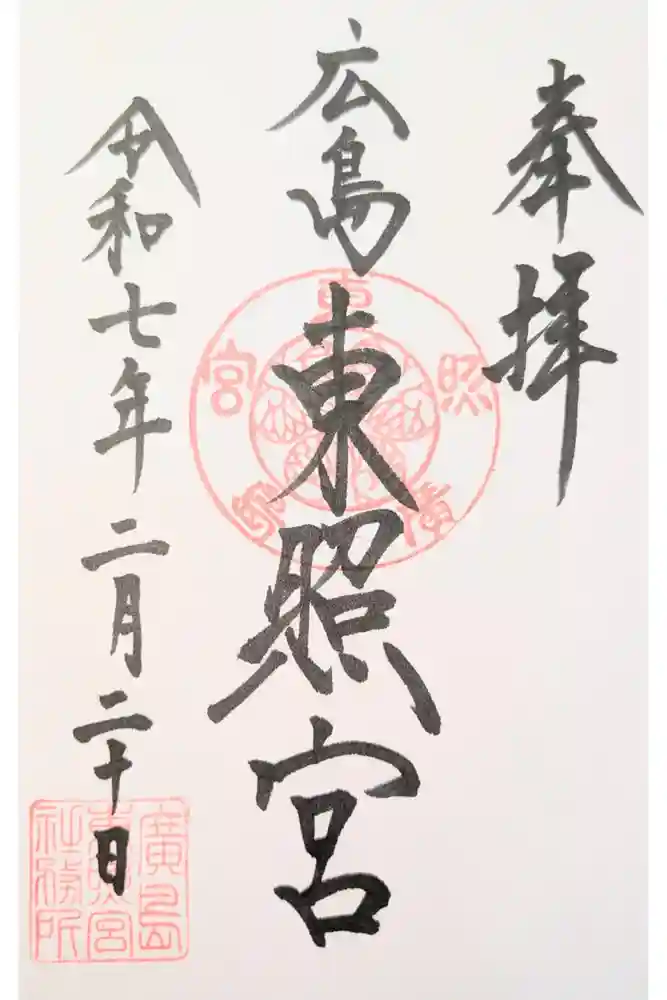 奉拝
広島東照宮
令和七年二月二十日
東照廣島宮
廣島
東照宮
社務所